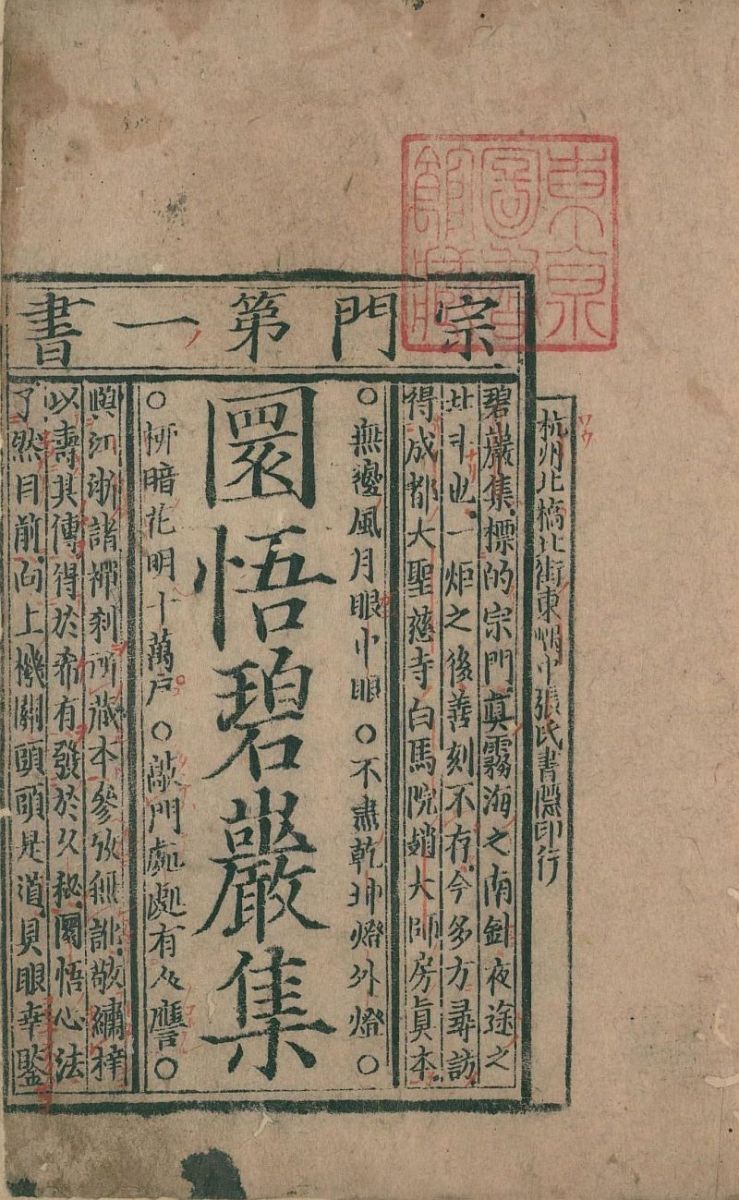 東京圖書館藏
宗門第一書
杭州北橋北街東嵎中張氏書隱印行
碧巖集標的宗門眞霧海之南針夜途之
北斗也一炬之後善刻不存今多方尋訪
得成都大聖慈寺白馬院趙大師房眞本
○無邊風月眼中眼○不盡乾坤燈外燈○
圜悟碧巖集
○柳暗花明十萬戶○敲門處處有人譍○
與江浙諸禪刹所藏本參攷無訛敬繡梓
以壽其傳得於希有發於久秘圜悟心法
了然目前向上機關頭頭是道具眼幸鑒